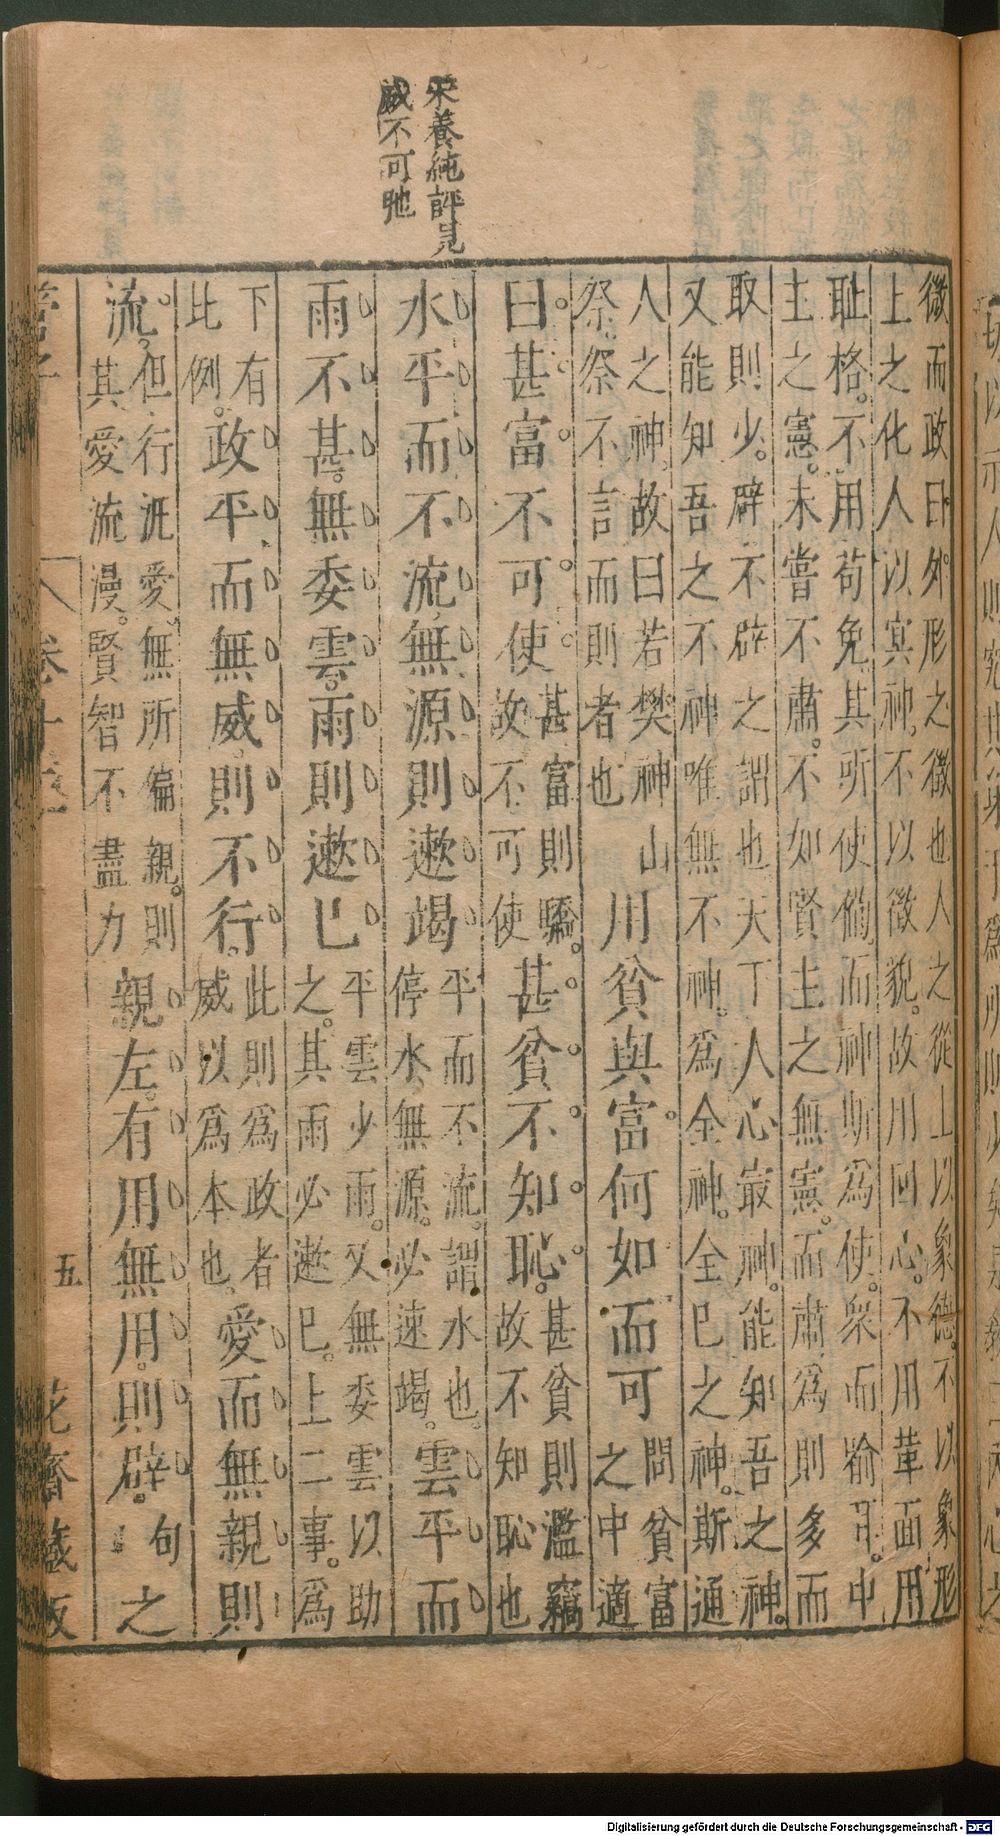 朱養純評見
威不可弛
徵而政曰外形之徵也人之從上以象德。不以象形
上之化人以㝠神。不以徵貌。故川回心。不用革面用
耻格。不用苟免。其所使僃。而神斯為使。衆而喻耳。中
主之憲。未嘗不肅。不如賢主之無憲。而肅為則多而
取則少。辟不辟之謂也天丁人心最神。能知吾之神。
又能知吾之不神唯無不神。為全神。全巳之神。斯通
人之神。故曰若樊神山
祭。祭不言而則者也
川貧與富。何如而可
問貧富
之中適
曰。甚富不可使。
甚富則驕。
故不可使
甚貧不知恥。
甚貧則濫竊
故不知恥也
水平而不流。無源則遬竭
平而不流。謂水也。
停水。無源。必速竭。
雲平而
雨不甚。無委雲。雨則遬已
平雲少雨。又無委雲以助
之。其雨必遬巳。上二事。為
下有
比例。
政平而無威。則不行。
此則為政者
威以為本也
愛而無親則
流。
但行汎愛。無所偏親。則
其愛流漫。賢智不盡力
親左。有用無用。則辟。
句
之
管子
卷十
五
花齋藏板
Digitalisierung gefördert durch die Deutsche Forschungsgemeinschaft - DFG